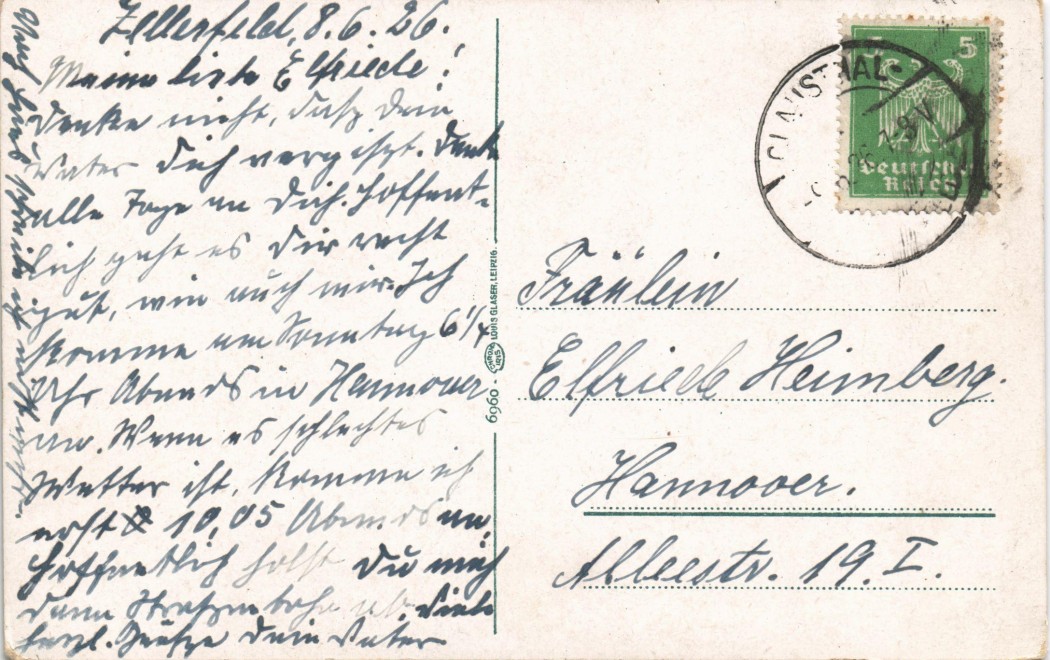 Zellerfeld, 8.6.26.
Meine liebe Elfriede!
Denke nicht, dasz Dein
Vater Dich vergiszt. Denke
alle Tage an Dich. Hoffent-
lich geht es Dir recht
gut, wie auch mir. Ich
komme am Sonntag 6 1/4
Uhr Abends in Hannover
an. Wenn es schlechtes
Wetter ist, komme ich
erst 10,05 Abends an,
hoffentlich holst Du mich
dann Straszenbahn ab. Viele
herzl. Grüsze Dein Vater
schreibe ich
6960 - LOUIS GLASER, LEIPZIG.
CLAUSTHAL-
7-8 V
5
Deutsches
Reich
Fräulein
Elfriede Heimberg.
Hannover.
Alleestr. 19. I.